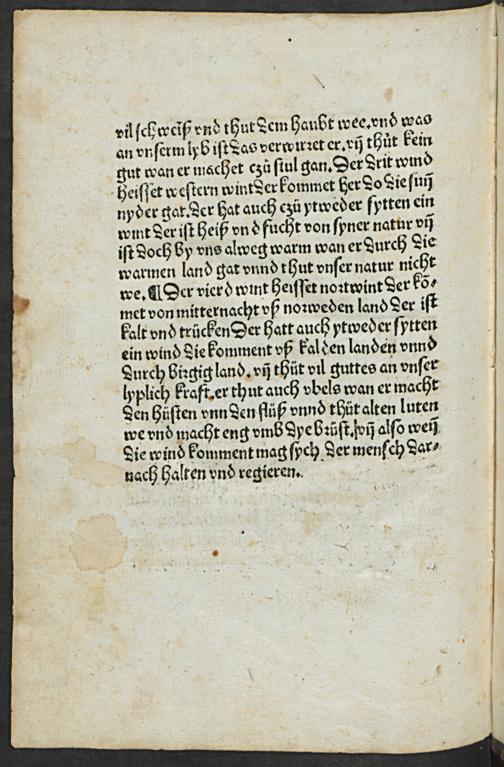 vil schweiß vnd thut dem haubt wee.vnd was
an vnserm lyb ist das verwirret er.vñ thůt kein
gut wan er machet czü stul gan.Der drit wind
heisset western wint der kommet her do die suñ
nyder gat.der hat auch czü ytweder sytten ein
wint der ist heiß vnd fucht von syner natur vñ
ist doch by vns alweg warm wan er durch die
warmen land gat vnnd thut vnser natur nicht
we.¶Der vierd wint heisset nortwint der kō⸗
met von mitternacht vß norweden land der ist
kalt vnd trücken Der hatt auch ytweder sytten
ein wind die komment vß kalden landen vnnd
durch birgig land.vñ thüt vil guttes an vnser
lyplich kraft.er thut auch vbels wan er macht
den hüsten vnn den flüß vnnd thüt alten luten
we vnd macht eng vmb dye brüst.vñ also weñ
die wind komment mag sych der mensch dar⸗
nach halten vnd regieren.